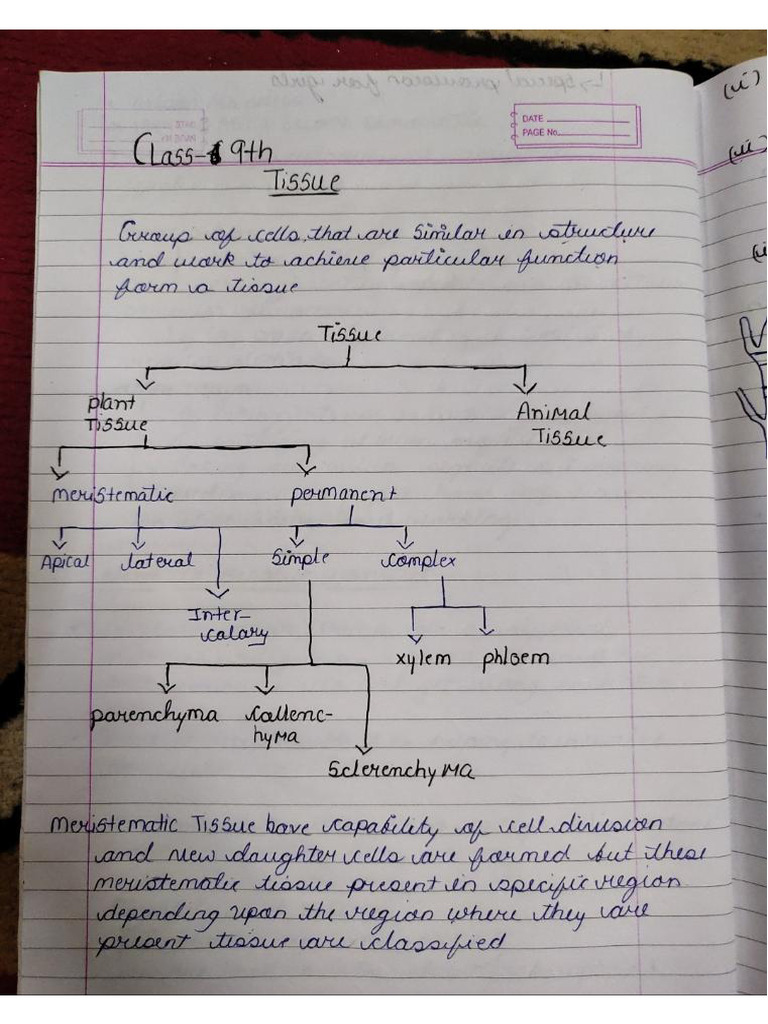 DATE
PAGE No.
Class- 9th
Tissue
Group of cells, that are similar in structure
and work to achieve particular function
form a tissue
Tissue
plant
Tissue
Animal
Tissue
meristematic permanent
Apical lateral Simple complex
Inter-
calary
xylem phloem
parenchyma collenc-
hyma
Sclerenchyma
Meristematic Tissue have capability of cell division
and new daughter cells are formed but these
meristematic tissue present in specific region
depending upon the region where they are
present tissue are classified
(vi)
(vii)